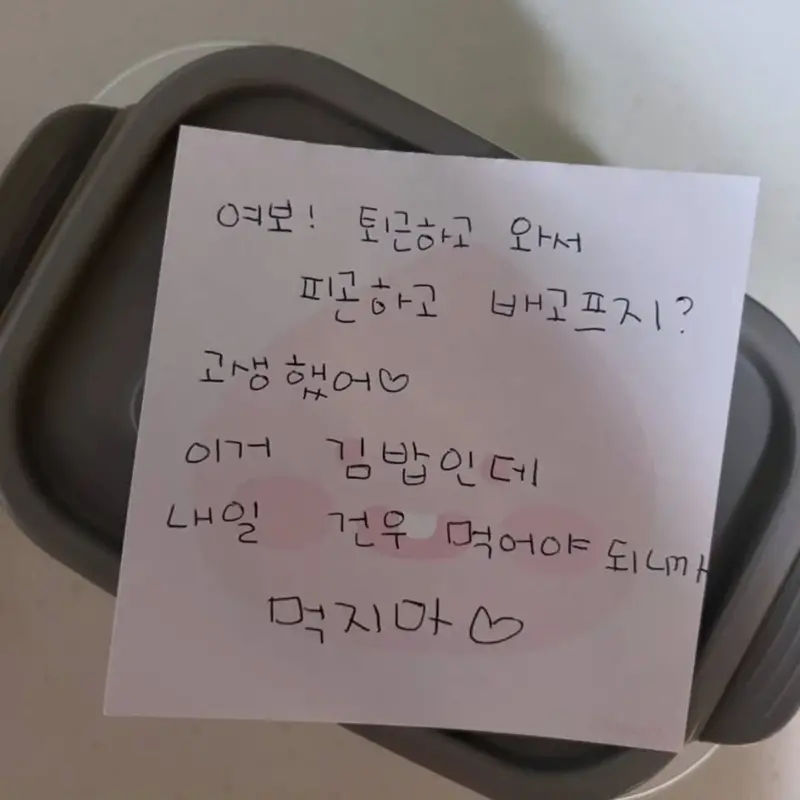 여보! 퇴근하고 와서
피곤하고 배고프지?
고생했어♡
이거 김밥인데
내일 건우 먹어야 되니까
먹지마♡